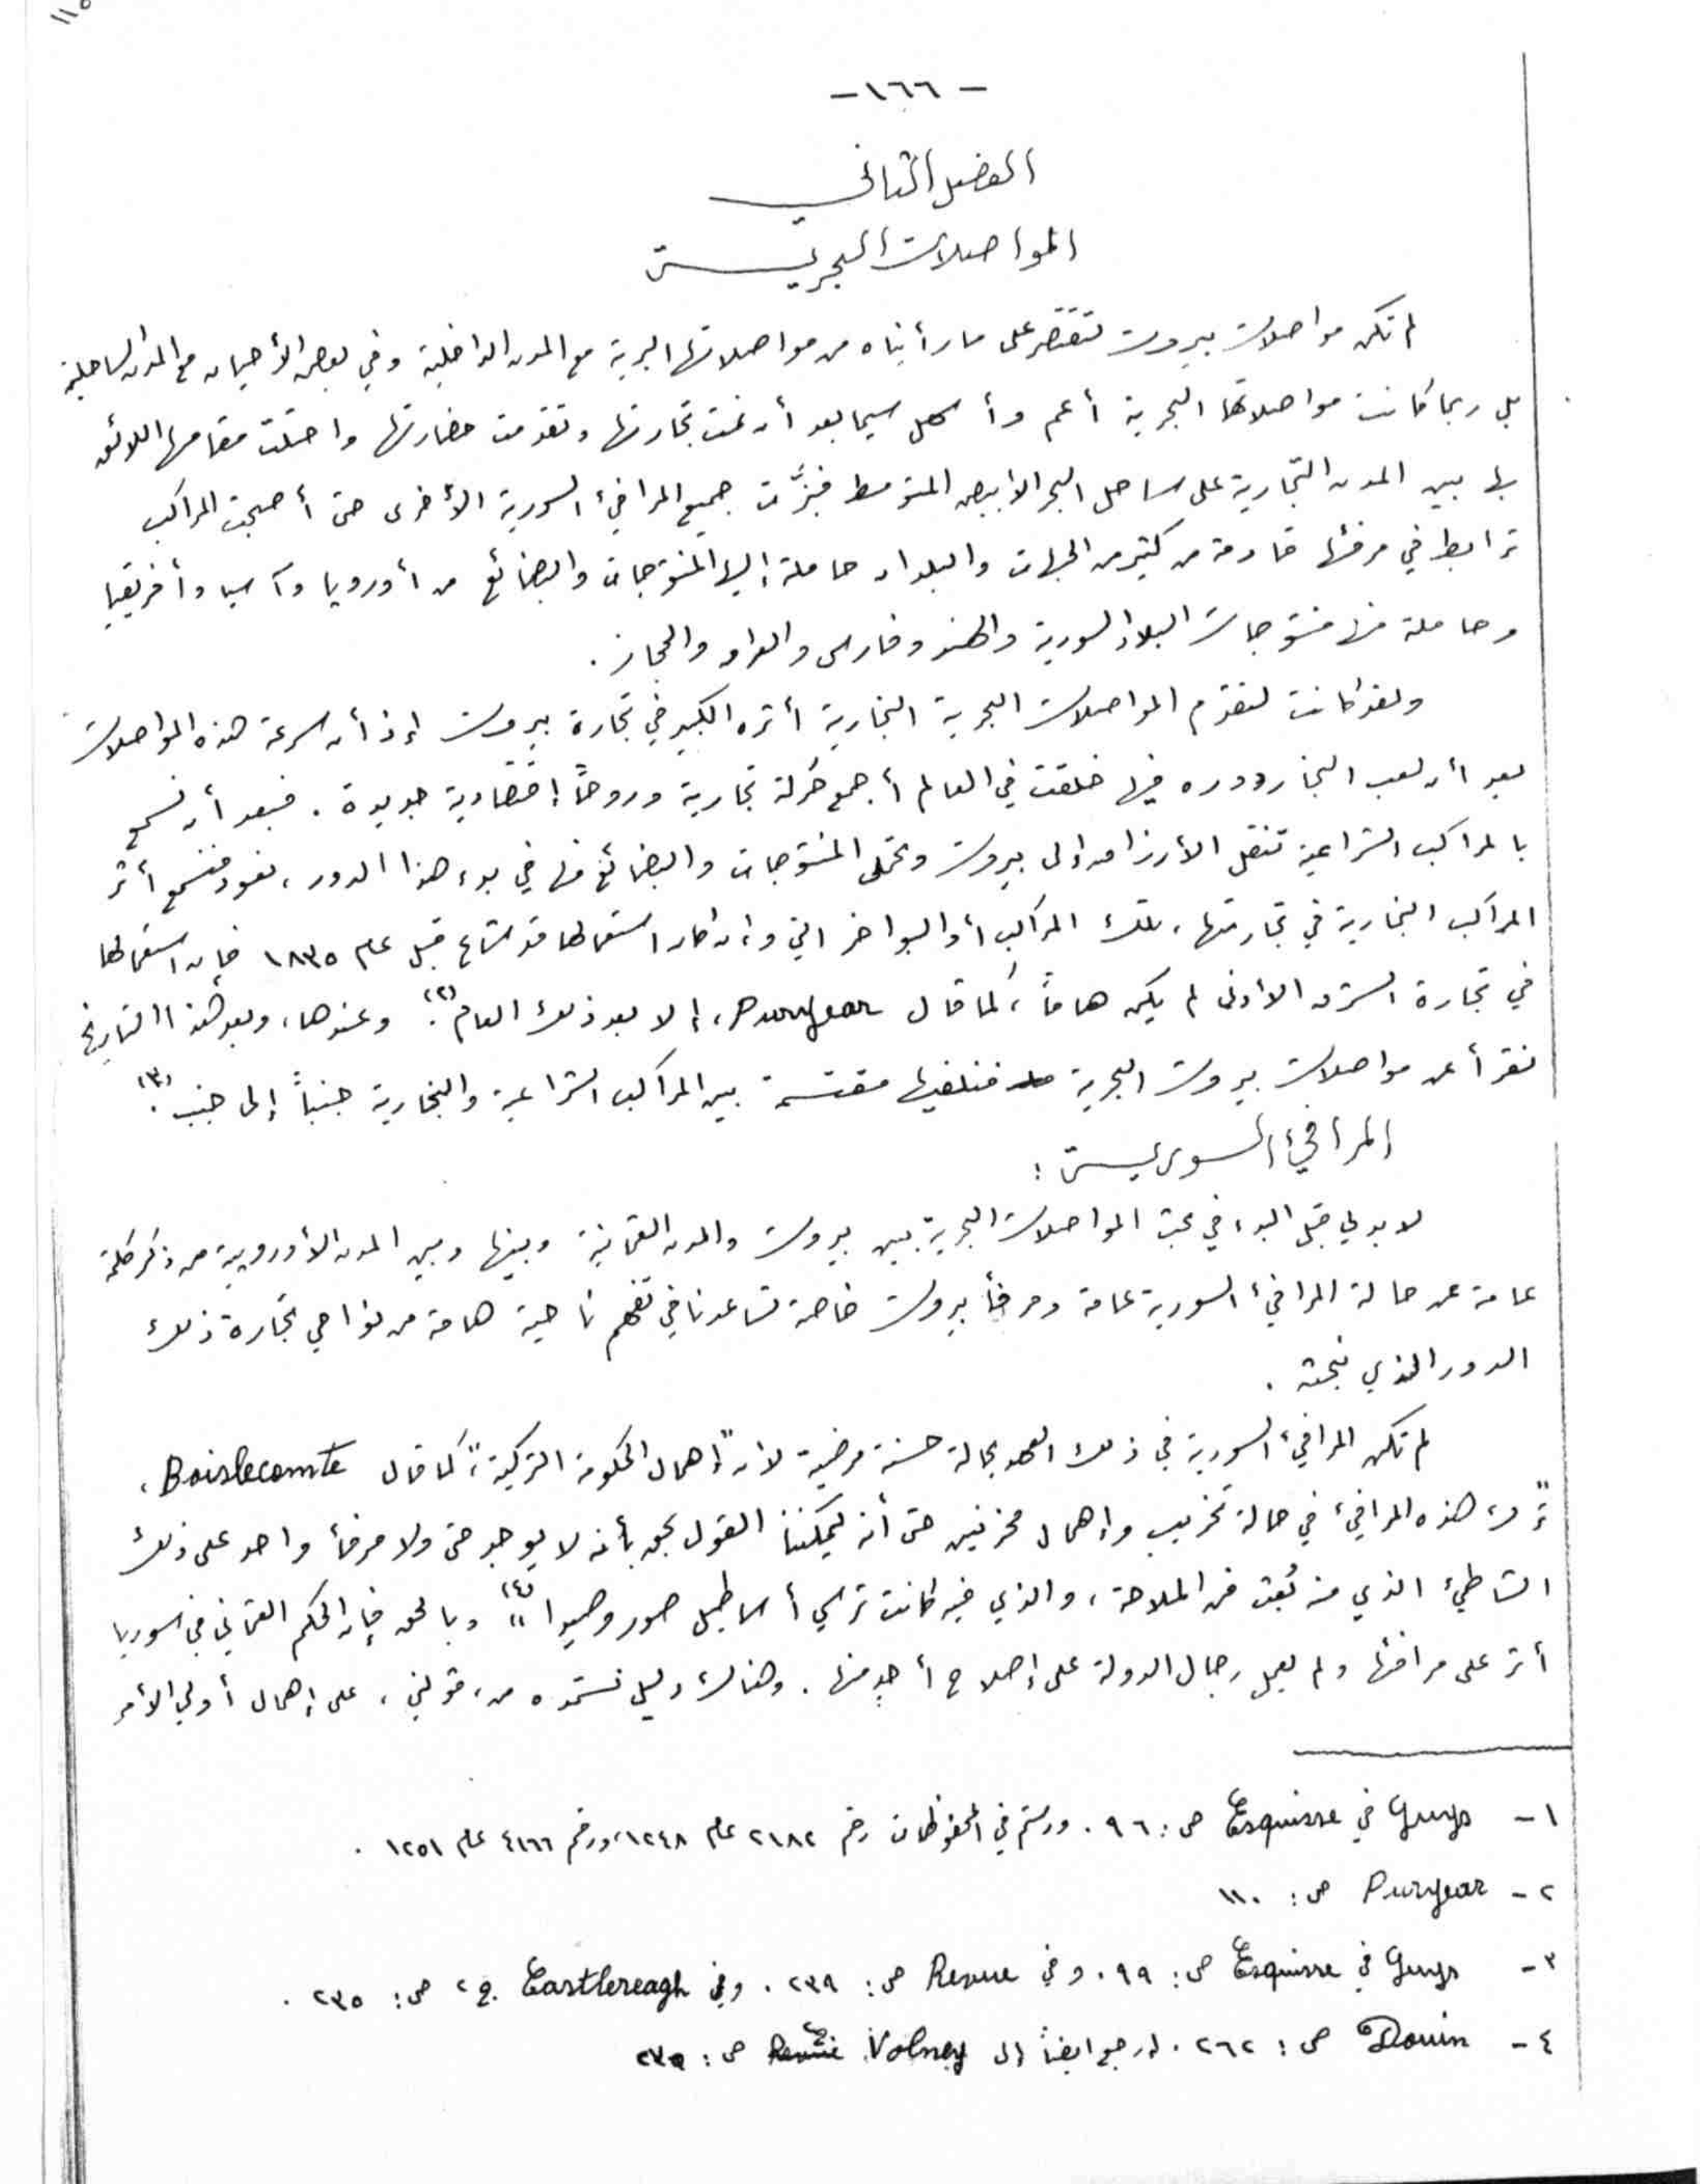 ١١٥
-١٦٦-
الفصل الثاني
المواصلات البحرية
لم تكن مواصلات بيروت لتقتصر على ما رأيناه من مواصلاتها البرية مع المدن الداخلية وفي بعض الأحيان مع المدن الساحلية
بل ربما كانت مواصلاتها البحرية أعم وأسهل سيما بعد أن نمت تجارتها وتقدمت حضارتها واحتلت مقامها اللائق
بها بين المدن التجارية على ساحل البحر الابيض المتوسط فبزَّت جميع المرافئ السورية الأخرى حتى أصبحت المراكب
ترابط في مرفئها قادمة من كثير من الجهات والبلدان حاملة إليها المنتوجات والبضائع من أوروبا وآسيا وأفريقيا
وحاملة منها منتوجات البلاد السورية والهند وفارس والعراق والحجاز .
ولقد كانت لتقدم المواصلات البحرية البخارية أثره الكبير في تجارة بيروت إذ أن سرعة هذه المواصلات
بعد أن لعب البخار دوره فيها خلقت في العالم أجمع حركة تجارية وروحاً إقتصادية جديدة . فبعد أن نسمع
بالمراكب الشراعية تنقل الأرزاق إلى بيروت وتحمل المنتوجات والبضائع منها في بدء هذا الدور ، نعود فنسمع أثر
المراكب البخارية في تجارتها ، تلك المراكب أو البواخر التي وإن كان استعمالها قد شاع قبل عام ١٨٣٥ فإن استعمالها
في تجارة الشرق الأدنى لم يكن هاماً ، كما قال Puryear ، إلا بعد ذلك العام (٢). وعندها ، وبعد هذا التاريخ
نقرأ عن مواصلات بيروت البحرية فنلفيها مقتسمة بين المراكب الشراعية والبخارية جنباً إلى جنب (٣).
المرافئ السورية :
لا بد لي قبل البدء في بحث المواصلات البحرية بين بيروت والمدن العثمانية وبينها وبين المدن الأوروبية من ذكر كلمة
عامة عن حالة المرافئ السورية عامة ومرفأ بيروت خاصة تساعدنا في تفهم ناحية هامة من نواحي تجارة ذلك
الدور الذي نبحثه .
لم تكن المرافئ السورية في ذلك العهد بحالة حسنة مرضية لأن "إهمال الحكومة التركية" ، كما قال Boislecomte ،
"ترك هذه المرافئ في حالة تخريب وإهمال محزنين حتى أنه ليمكننا القول بحق بأنه لا يوجد حتى ولا مرفأ واحد على ذلك
الشاطئ الذي منه بُعث فن الملاحة ، والذي فيه كانت ترسي أساطيل صور وصيدا" (٤) وبالحق فإن الحكم العثماني في سوريا
أثر على مرافئها ولم يعمل رجال الدولة على إصلاح أحدٍ منها . وهناك دليل نستمده من ، ڤولني ، على إهمال أولي الأمر
١ - Guys في Esquisse ص : ٩٦ . ورستم في المحفوظات رقم ٢١٨٢ عام ١٢٤٨ ، ورقم ٤١٦٦ عام ١٢٥١ .
٢ - Puryear ص : ١١٠
٣ - Guys في Esquisse ص : ٩٩ . وفي Revue ص : ٢٣٩ . وفي Castlereagh ج ٢ ص : ٢٣٥ .
٤ - Douin ص : ٢٦٢ . ارجع ايضاً الى Volney ص :